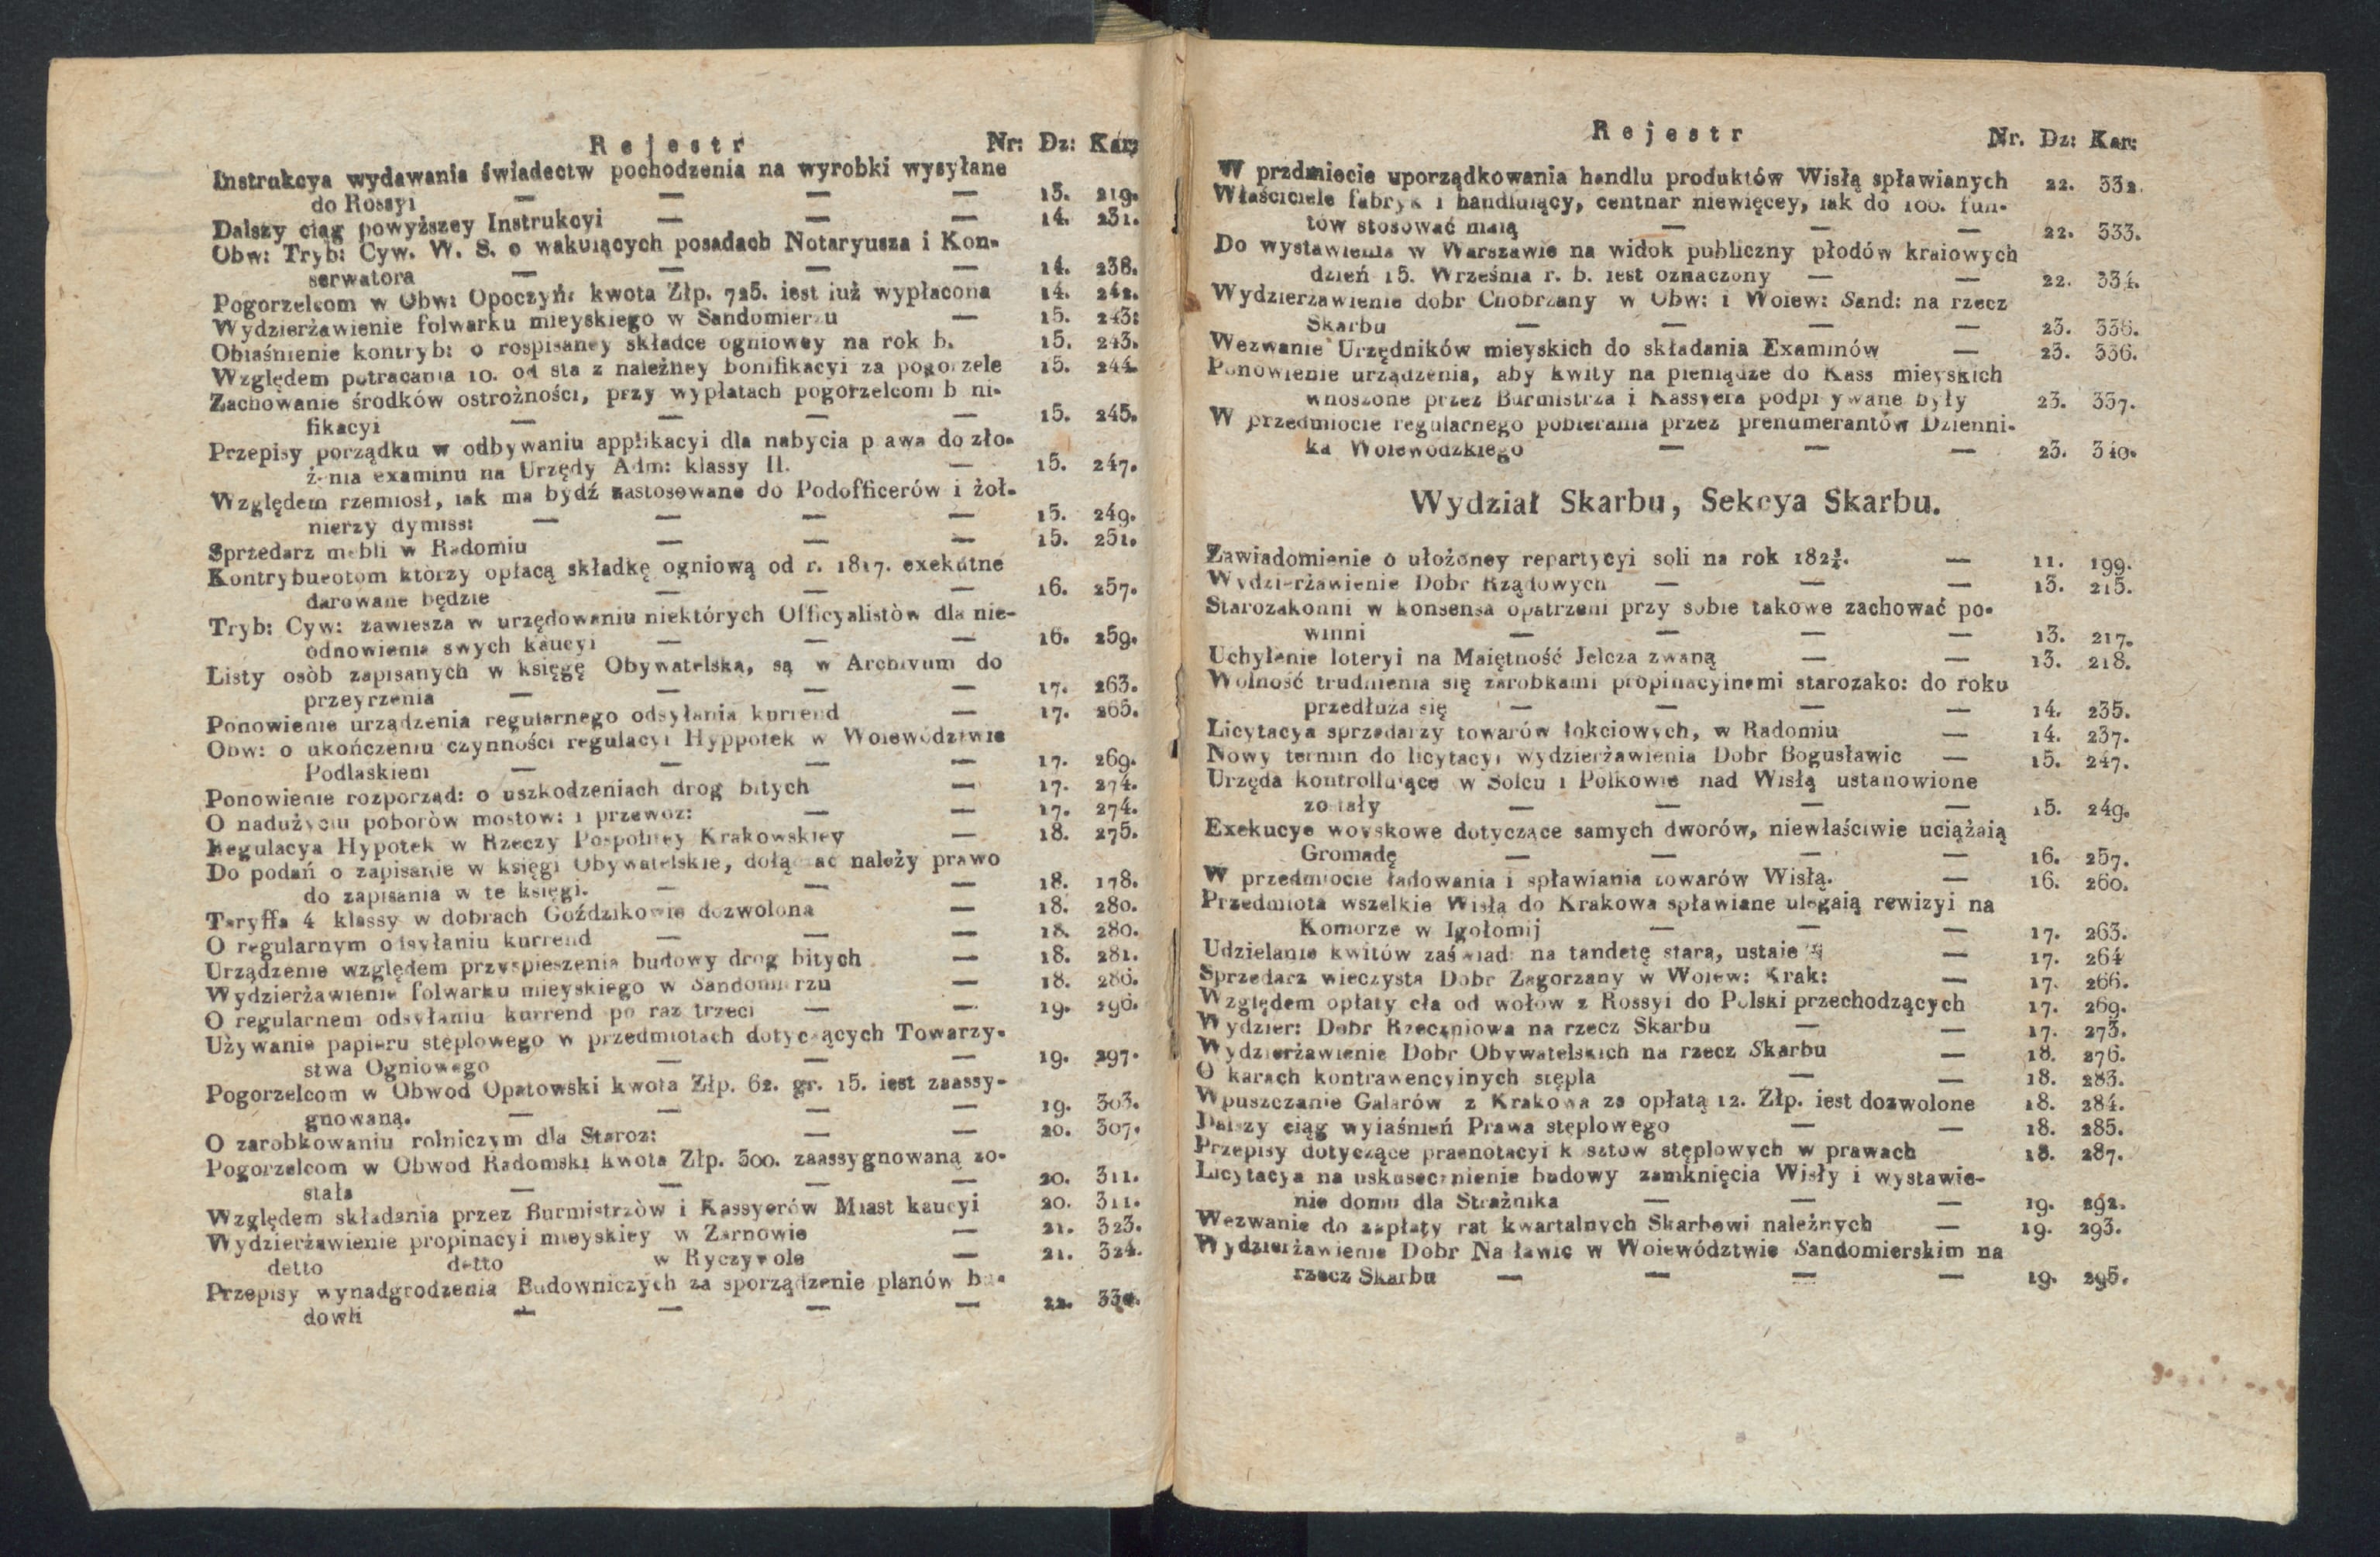 Rejestr Nr: Dz: Kar:
Instrukcya wydawania świadectw pochodzenia na wyrobki wysyłane
do Rossyi — — — — 13. 219.
Dalszy ciąg powyższey Instrukcyi — — — 14. 231.
Obw: Tryb: Cyw. W. S. o wakuiących posadach Notaryusza i Kon-
serwatora — — — — 14. 238.
Pogorzelcom w Obw: Opoczyń: kwota Złp. 725. iest iuż wypłacona 14. 242.
Wydzierżawienie folwarku mieyskiego w Sandomierzu — 15. 243:
Obiaśnienie kontryb: o rospisaney składce ogniowey na rok b. 15. 243.
Względem potracania 10. od sta z należney bonifikacyi za pogorzele 15. 244.
Zachowanie środków ostrożności, przy wypłatach pogorzelcom b ni-
fikacyi — — — — 15. 245.
Przepisy porządku w odbywaniu applikacyi dla nabycia p awa do zło-
żenia examinu na Urzędy Adm: klassy II. — 15. 247.
Względem rzemiosł, iak ma bydź zastosowane do Podofficerów i żoł-
nierzy dymiss: — — — — 15. 249.
Sprzedarz mebli w Radomiu — — — 15. 251.
Kontrybuentom którzy opłacą składkę ogniową od r. 1817. exekutne
darowane będzie — — — 16. 257.
Tryb: Cyw: zawiesza w urzędowaniu niektórych Officyalistòw dla nie-
odnowienia swych kaucyi — — — 16. 259.
Listy osòb zapisanych w księgę Obywatelska, są w Archivum do
przeyrzenia — — — — 17. 263.
Ponowienie urządzenia regularnego odsyłania kurrend — 17. 265.
Obw: o ukończeniu czynności regulacyi Hyppotek w Woiewództwie
Podlaskiem — — — — 17. 269.
Ponowienie rozporząd: o uszkodzeniach drog bitych — 17. 274.
O nadużyciu poboròw mostow: i przewoz: — — 17. 274.
Regulacya Hypotek w Rzeczy Pospolitey Krakowskiey — 18. 275.
Do podań o zapisanie w księgi Obywatelskie, dołączać należy prawo
do zapisania w te księgi. — — — 18. 178.
Taryffa 4 klassy w dobrach Goździkowie dozwolona — 18. 280.
O regularnym odsyłaniu kurrend — — — 18. 280.
Urządzenie względem przyspieszenia budowy drog bitych — 18. 281.
Wydzierżawienie folwarku mieyskiego w Sandomierzu — 18. 286.
O regularnem odsyłaniu kurrend po raz trzeci — — 19. 296.
Używanie papieru stęplowego w przedmiotach dotyczących Towarzy-
stwa Ogniowego — — — 19. 297.
Pogorzelcom w Obwod Opatowski kwota Złp. 62. gr. 15. iest zaassy-
gnowaną. — — — — 19. 303.
O zarobkowaniu rolniczym dla Staroz: — — 20. 307.
Pogorzelcom w Obwod Radomski kwota Złp. 500. zaassygnowaną zo-
stała — — — — 20. 311.
Względem składania przez Burmistrzòw i Kassyerów Miast kaucyi 20. 311.
Wydzierżawienie propinacyi mieyskiey w Zarnowie — 21. 323.
detto detto w Ryczywole — 21. 324.
Przepisy wynadgrodzenia Budowniczych za sporządzenie planów bu-
dowli — — — — 22.
Rejestr Nr. Dz: Kar:
W przdmiecie uporządkowania handlu produktów Wisłą spławianych 22. 332.
Właściciele fabryk i handluiący, centnar niewięcey, iak do 100. fun-
tów stosować maią — — — 22. 333.
Do wystawienia w Warszawie na widok publiczny płodów kraiowych
dzień 15. Września r. b. iest oznaczony — — 22. 334.
Wydzierżawienie dobr Chobrzany w Obw: i Woiew: Sand: na rzecz
Skarbu — — — — 23. 336.
Wezwanie Urzędników mieyskich do składania Examinów — 23. 336.
Ponowienie urządzenia, aby kwity na pieniądze do Kass mieyskich
wnoszone przez Burmistrza i Kassyera podpisywane były 23. 337.
W przedmiocie regularnego pobierania przez prenumerantów Dzienni-
ka Woiewodzkiego — — — 23. 340.
Wydział Skarbu, Sekcya Skarbu.
Zawiadomienie o ułożoney repartycyi soli na rok 182¾. — 11. 199.
Wydzierżawienie Dobr Rządowych — — — 13. 215.
Starozakonni w konsensa opatrzeni przy sobie takowe zachować po-
winni — — — — 13. 217.
Uchylenie loteryi na Maiętność Jelcza zwaną — — 13. 218.
Wolność trudnienia się zarobkami propinacyinemi starozako: do roku
przedłuża się — — — — 14. 235.
Licytacya sprzedarzy towarów łokciowych, w Radomiu — 14. 237.
Nowy termin do licytacyi wydzierżawienia Dobr Bogusławic — 15. 247.
Urzęda kontrolluiące w Solcu i Polkowie nad Wisłą ustanowione
zostały — — — — 15. 249.
Exekucye woyskowe dotyczące samych dworów, niewłaściwie uciążaią
Gromadę — — — — 16. 257.
W przedmiocie ładowania i spławiania towarów Wisłą. — 16. 260.
Przedmiota wszelkie Wisłą do Krakowa spławiane ulegaią rewizyi na
Komorze w Igołomij — — — 17. 263.
Udzielanie kwitów zaświad: na tandetę stara, ustaie — 17. 264
Sprzedarz wieczysta Dobr Zagorzany w Woiew: Krak: — 17. 266.
Względem opłaty cła od wołow z Rossyi do Polski przechodzących 17. 269.
Wydzier: Dobr Rzeczniowa na rzecz Skarbu — — 17. 273.
Wydzierżawienie Dobr Obywatelskich na rzecz Skarbu — 18. 276.
O karach kontrawencyinych stępla — — 18. 283.
Wpuszczanie Galarów z Krakowa za opłatą 12. Złp. iest dozwolone 18. 284.
Dalszy ciąg wyiaśnień Prawa stęplowego — — 18. 285.
Przepisy dotyczące praenotacyi k sztow stęplowych w prawach 18. 287.
Licytacya na uskutecznienie budowy zamknięcia Wisły i wystawie-
nie domu dla Strażnika — — — 19. 292.
Wezwanie do zapłaty rat kwartalnych Skarbowi należnych — 19. 293.
Wydzierżawienie Dobr Na ławic w Woiewództwie Sandomierskim na
rzecz Skarbu — — — — 19. 295.